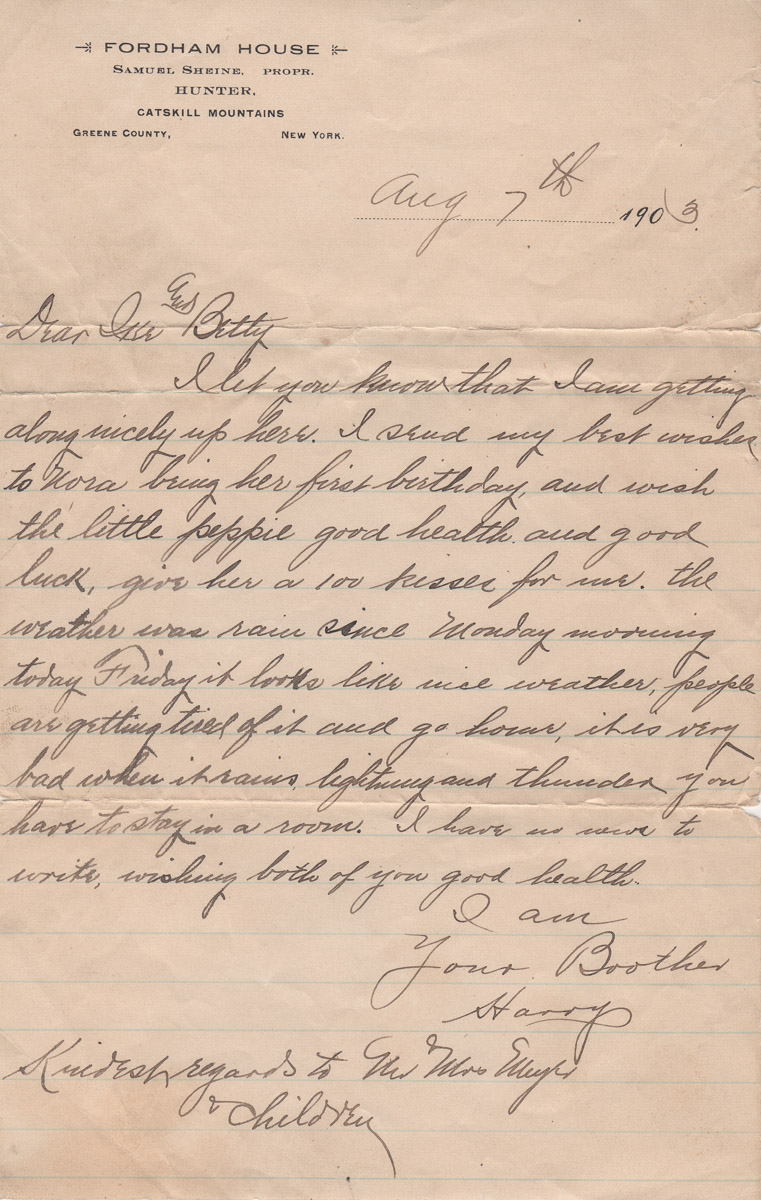 FORDHAM HOUSE
SAMUEL SHEINE, PROPR.
HUNTER,
CATSKILL MOUNTAINS
GREENE COUNTY, NEW YORK.
Aug 7th 1903.
Dear Ike and Betty
I let you know that I am getting
along nicely up here. I send my best wishes
to Nora being her first birthday, and wish
the little peppie good health and good
luck, give her a 100 kisses for me. the
weather was rain since Monday morning
today Friday it looks like nice weather, people
are getting tired of it and go home, it is very
bad when it rains, lightning and thunder you
have to stay in a room. I have no news to
write, wishing both of you good health.
I am
Your Brother
Harry
Kindest regards to Mr & Mrs Meyer
& Children